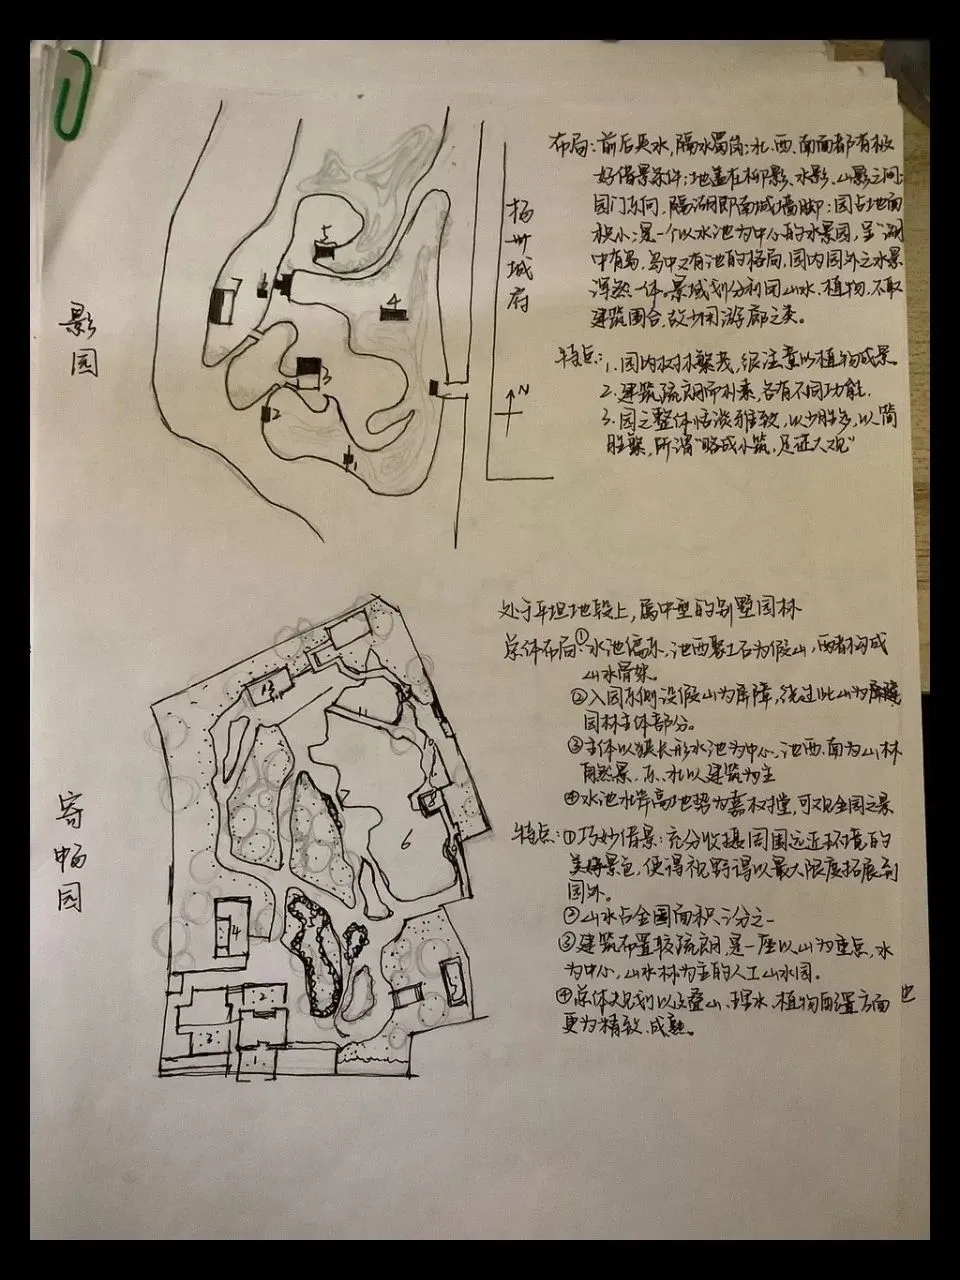 影园
扬州城府
N
5
4
3
2
1
布局:前后夹水,隔水蜀岗;北、西、南面都有极
好借景条件;地盖在柳影、水影、山影之间;
园门东向,隔湖即南城墙脚;园占地面
积小;是一个以水池为中心的水景园,呈“湖
中有岛,岛中又有池的格局,园内园外之水景
浑然一体。景域划分利用山水、植物,不取
建筑围合,故少用游廊之类。
特点:1.园内树木繁茂,很注意以植物成景。
2.建筑疏朗而朴素,各有不同功能.
3.园之整体恬淡雅致,以少胜多,以简
胜繁,所谓“略成小筑,足征大观”
寄畅园
11
6
14
5
2
3
1
处于平坦地段上,属中型的别墅园林
总体布局①水池偏东,池西聚土石为假山,两者构成
山水骨架。
②入园东侧设假山为屏障,绕过此山为
园林主体部分。
③主体以狭长形水池为中心,池西、南为山林
自然景,东、北以建筑为主
④水池北岸高地势为嘉树堂,可观全园之景
特点:①巧妙借景:充分收摄园围远近环境的
美好景色,使得视野得以最大限度拓展到
园外。
②山水占全园面积三分之一
③建筑布置较疏朗,是一座以山为重点,水
为中心,山水林为主的人工山水园。
④总体规划以及叠山、理水、植物配置方面也
更为精致、成熟。